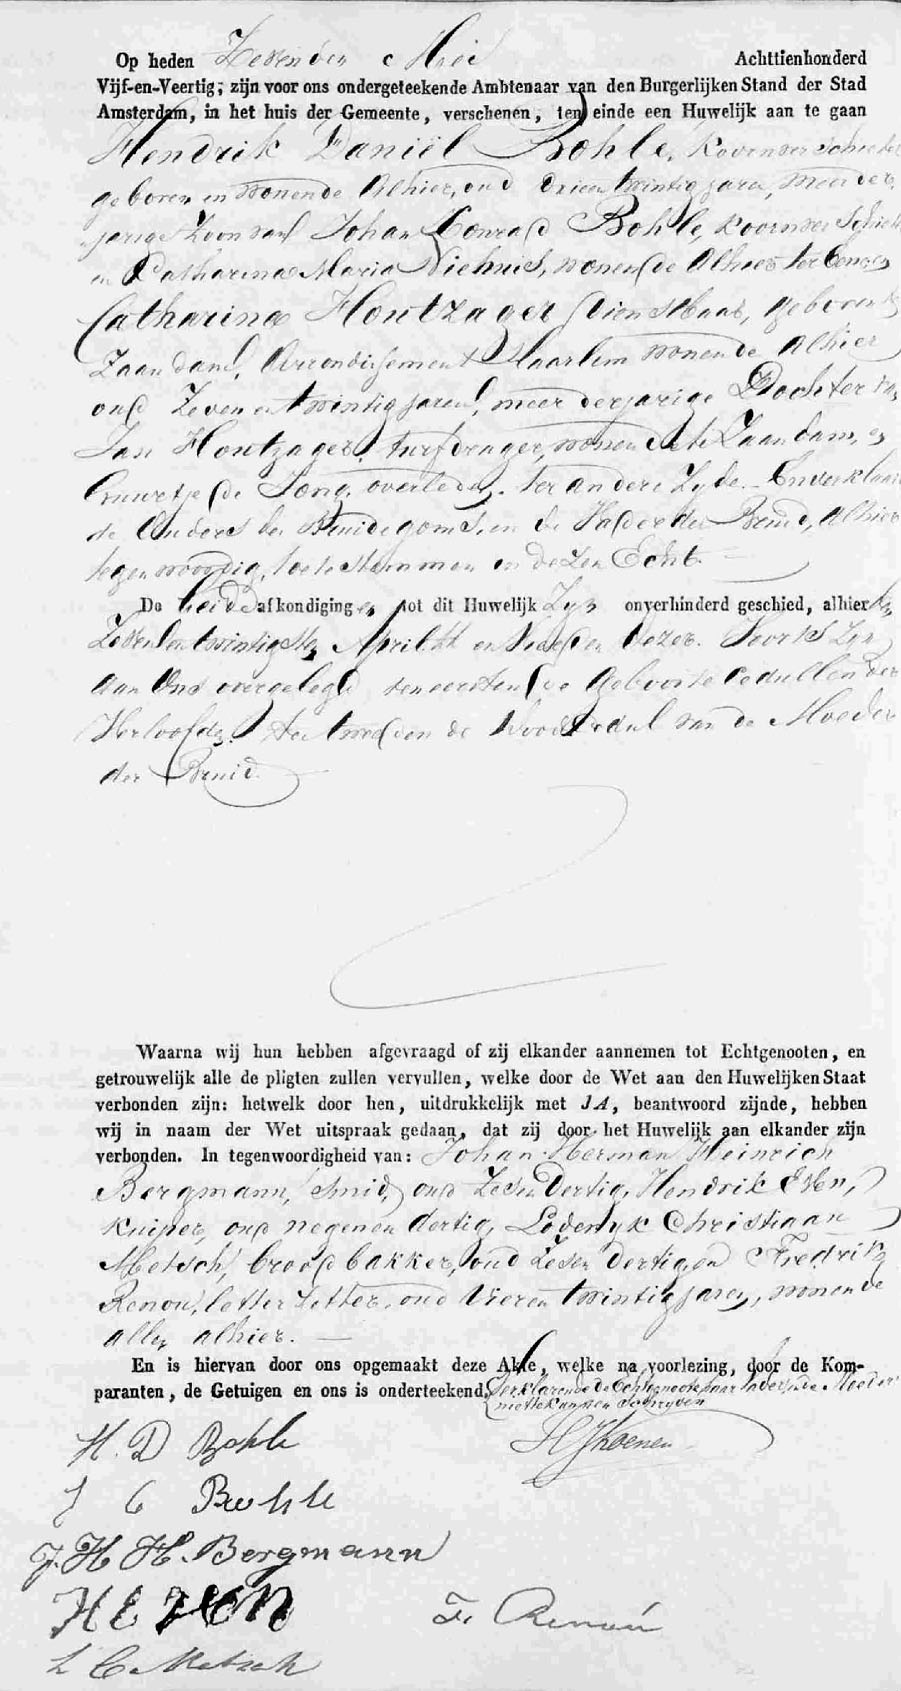 Op heden Zevenden Mei Achttienhonderd
Vijf-en-Veertig; zijn voor ons ondergeteekende Ambtenaar van den Burgerlijken Stand der Stad
Amsterdam, in het huis der Gemeente, verschenen, ten einde een Huwelijk aan te gaan
Hendrik Daniël Bohle, Koornverschieter
geboren en wonende Alhier, oud drieentwintig jaren, minder
jarige Zoon van Johan Conrad Bohle, Koornverschieter
en Catharina Maria Niehuis, wonende Alhier ter Eenre en
Catharina Houtzager Dienstbaar, geboren te
Zaandam, Arrondissement Haarlem wonende Alhier
oud Zevenentwintig jaren, meerderjarige Dochter van
Jan Houtzager, turfdrager, wonende te Zaandam, en
de Jong, overleden. ter andere Zyde. En verklaar
de Ouders des Bruidegoms, en de Vader der Bruid, Alhier
tegenwoordig, toetestemmen in dezen Echt.
De beide afkondigingen tot dit Huwelijk Zyn onverhinderd geschied, alhier den
Zevenentwintigsten April ll en Vierden dezer. Voorts Zyn
Aan Ons overgelegd ten eersten de Geboorte Cedullen der
Verloofden. Ten tweeden de Doodcedul van de Moeder
der Bruid.
Waarna wij hun hebben afgevraagd of zij elkander aannemen tot Echtgenooten, en
getrouwelijk alle de pligten zullen vervullen, welke door de Wet aan den Huwelijken Staat
verbonden zijn: hetwelk door hen, uitdrukkelijk met JA, beantwoord zijnde, hebben
wij in naam der Wet uitspraak gedaan, dat zij door het Huwelijk aan elkander zijn
verbonden. In tegenwoordigheid van: Johan Herman Heinrich
Bergmann, Smid, oud Zesendertig, Hendrik Even,
Kuiper, oud negenendertig, Lodewyk Christiaan
Metsch, broodbakker, oud Zesendertig en Fredrik
Renou, letterzetter, oud Vierentwintig jaren, wonende
allen alhier.
En is hiervan door ons opgemaakt deze Akte, welke na voorlezing, door de Kom-
paranten, de Getuigen en ons is onderteekend, Verklarende de Echtgenoote haar Vader en de Moeder
niet te kunnen Schryven
H. D Bohle
J C Bohle
J. H H. Bergmann
H EVEN
F. Renou
L C. Metsch